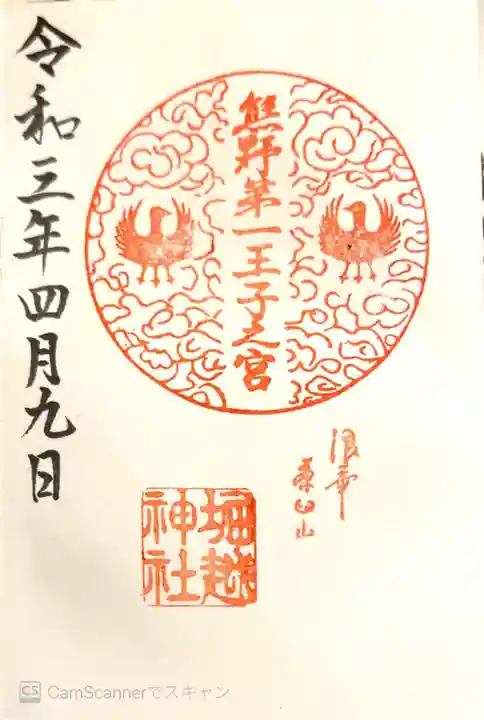 令和三年四月九日
熊野第一王子之宮
浪華
茶臼山
堀越
神社
CS CamScannerでスキャン